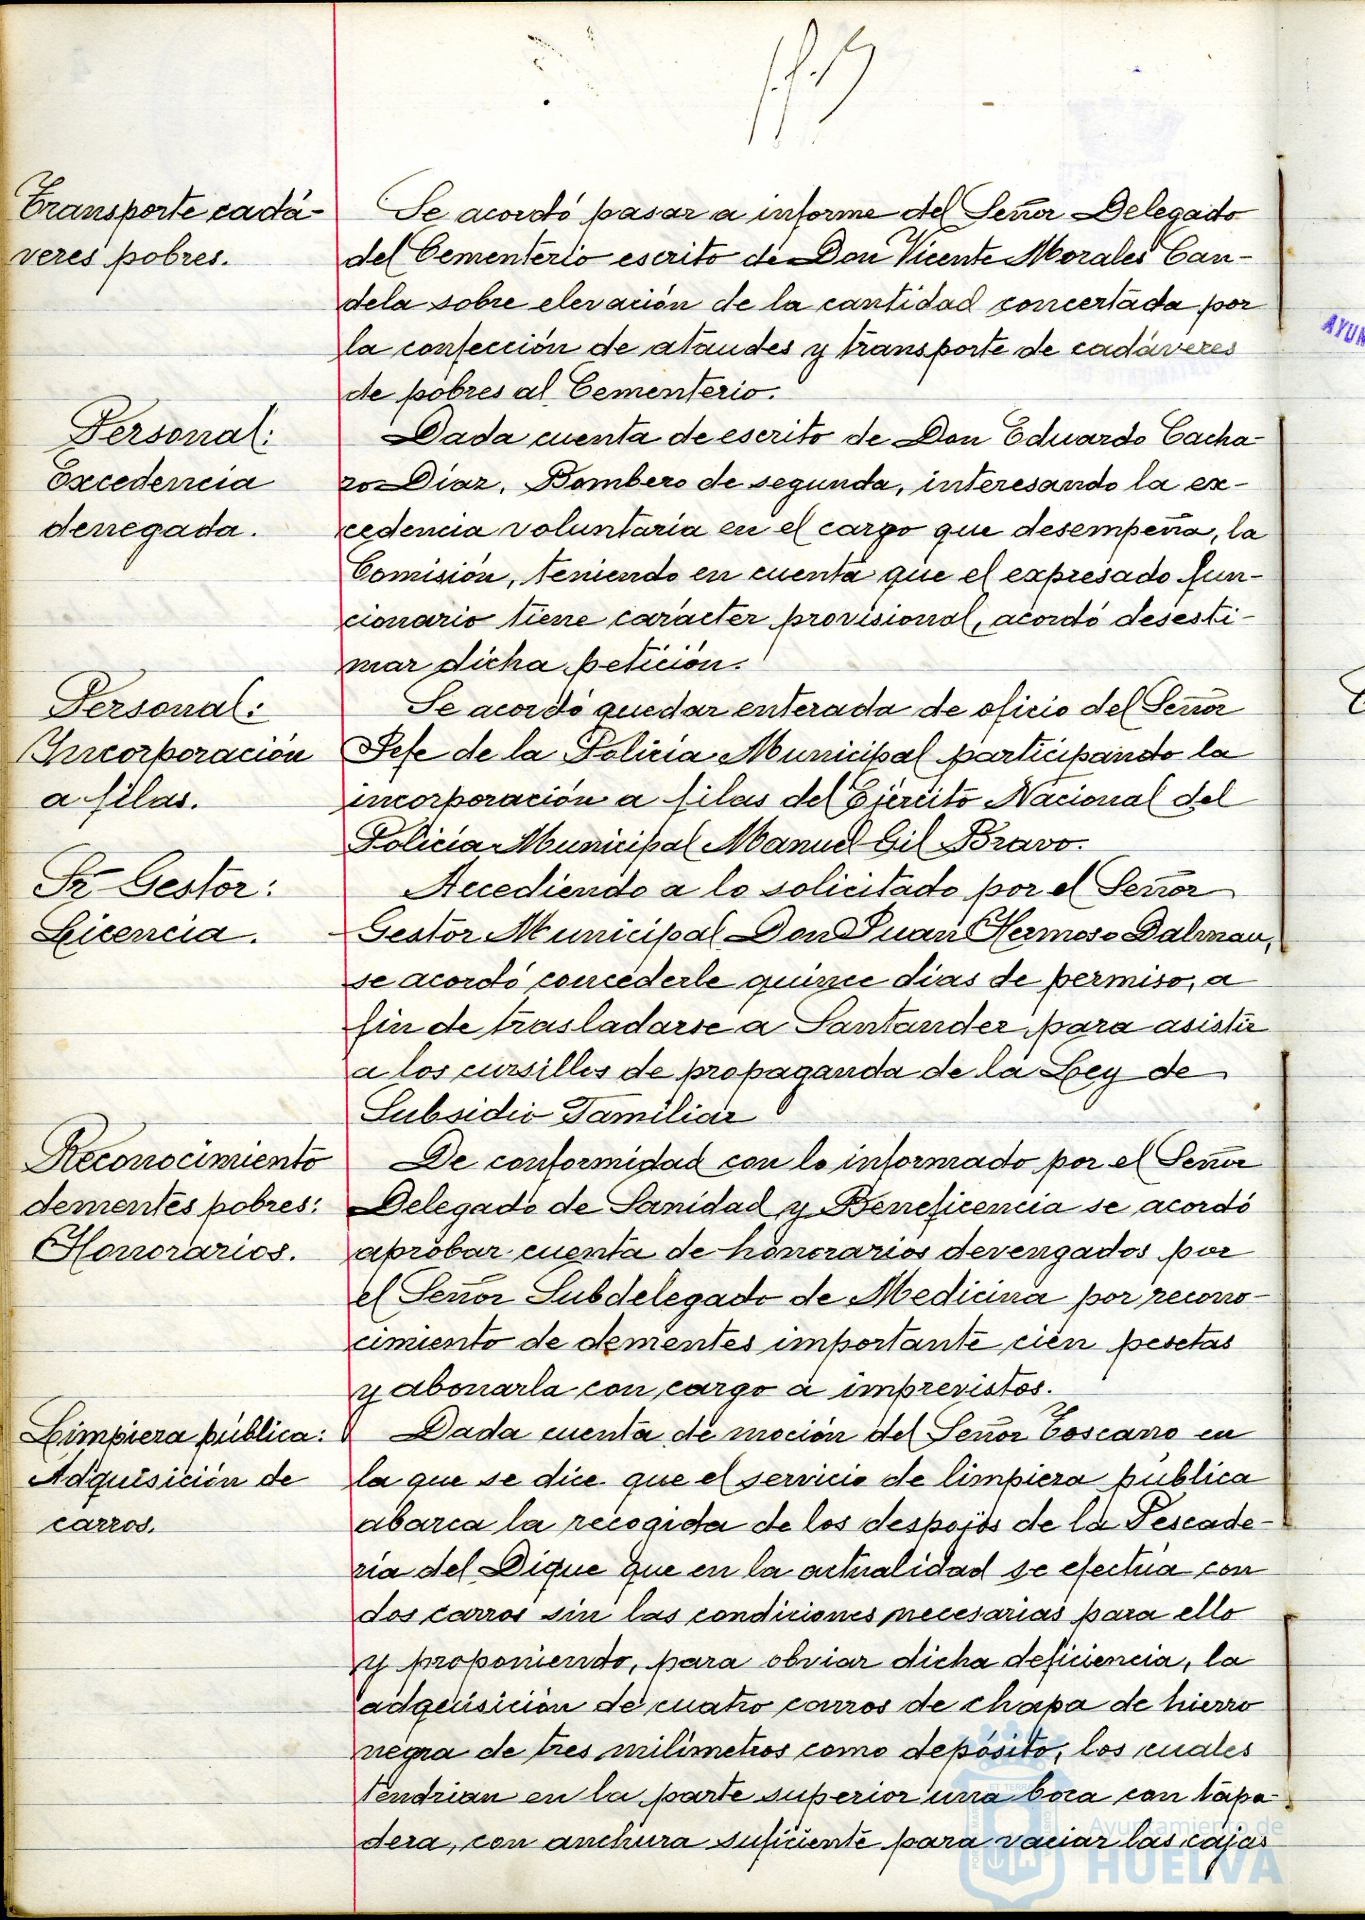 Transporte cadá-
veres pobres.
Se acordó pasar a informe del Señor Delegado
del Cementerio escrito de Don Vicente Morales Can-
dela sobre elevación de la cantidad concertada por
la confección de ataudes y transporte de cadáveres
de pobres al Cementerio.
Personal:
Excedencia
denegada.
Dada cuenta de escrito de Don Eduardo Cacha-
ro Díaz, Bombero de segunda, interesando la ex-
cedencia voluntaria en el cargo que desempeña, la
Comisión, teniendo en cuenta que el expresado fun-
cionario tiene carácter provisional, acordó desesti-
mar dicha petición.
Personal:
Incorporación
a filas.
Se acordó quedar enterada de oficio del Señor
Jefe de la Policía Municipal participando la
incorporación a filas del Ejército Nacional del
Policía Municipal Manuel Gil Bravo.
Sr Gestor:
Licencia.
Accediendo a lo solicitado por el Señor
Gestor Municipal Don Juan Hermoso Dalmau,
se acordó concederle quince días de permiso, a
fin de trasladarse a Santander para asistir
a los cursillos de propaganda de la Ley de
Subsidio Familiar
Reconocimiento
dementes pobres:
Honorarios.
De conformidad con lo informado por el Señor
Delegado de Sanidad y Beneficencia se acordó
aprobar cuenta de honorarios devengados por
el Señor Subdelegado de Medicina por recono-
cimiento de dementes importante cien pesetas
y abonarla con cargo a imprevistos.
Limpieza pública:
Adquisición de
carros.
Dada cuenta de moción del Señor Toscano en
la que se dice que el servicio de limpieza pública
abarca la recogida de los despojos de la Pescade-
ría del Dique que en la actualidad se efectúa con
dos carros sin las condiciones necesarias para ello
y proponiendo, para obviar dicha deficiencia, la
adquisición de cuatro carros de chapa de hierro
negra de tres milímetros como depósito, los cuales
tendrian en la parte superior una boca con tapa-
dera, con anchura suficiente para vaciar las cajas
AYUN
Ayuntamiento de
HUELVA